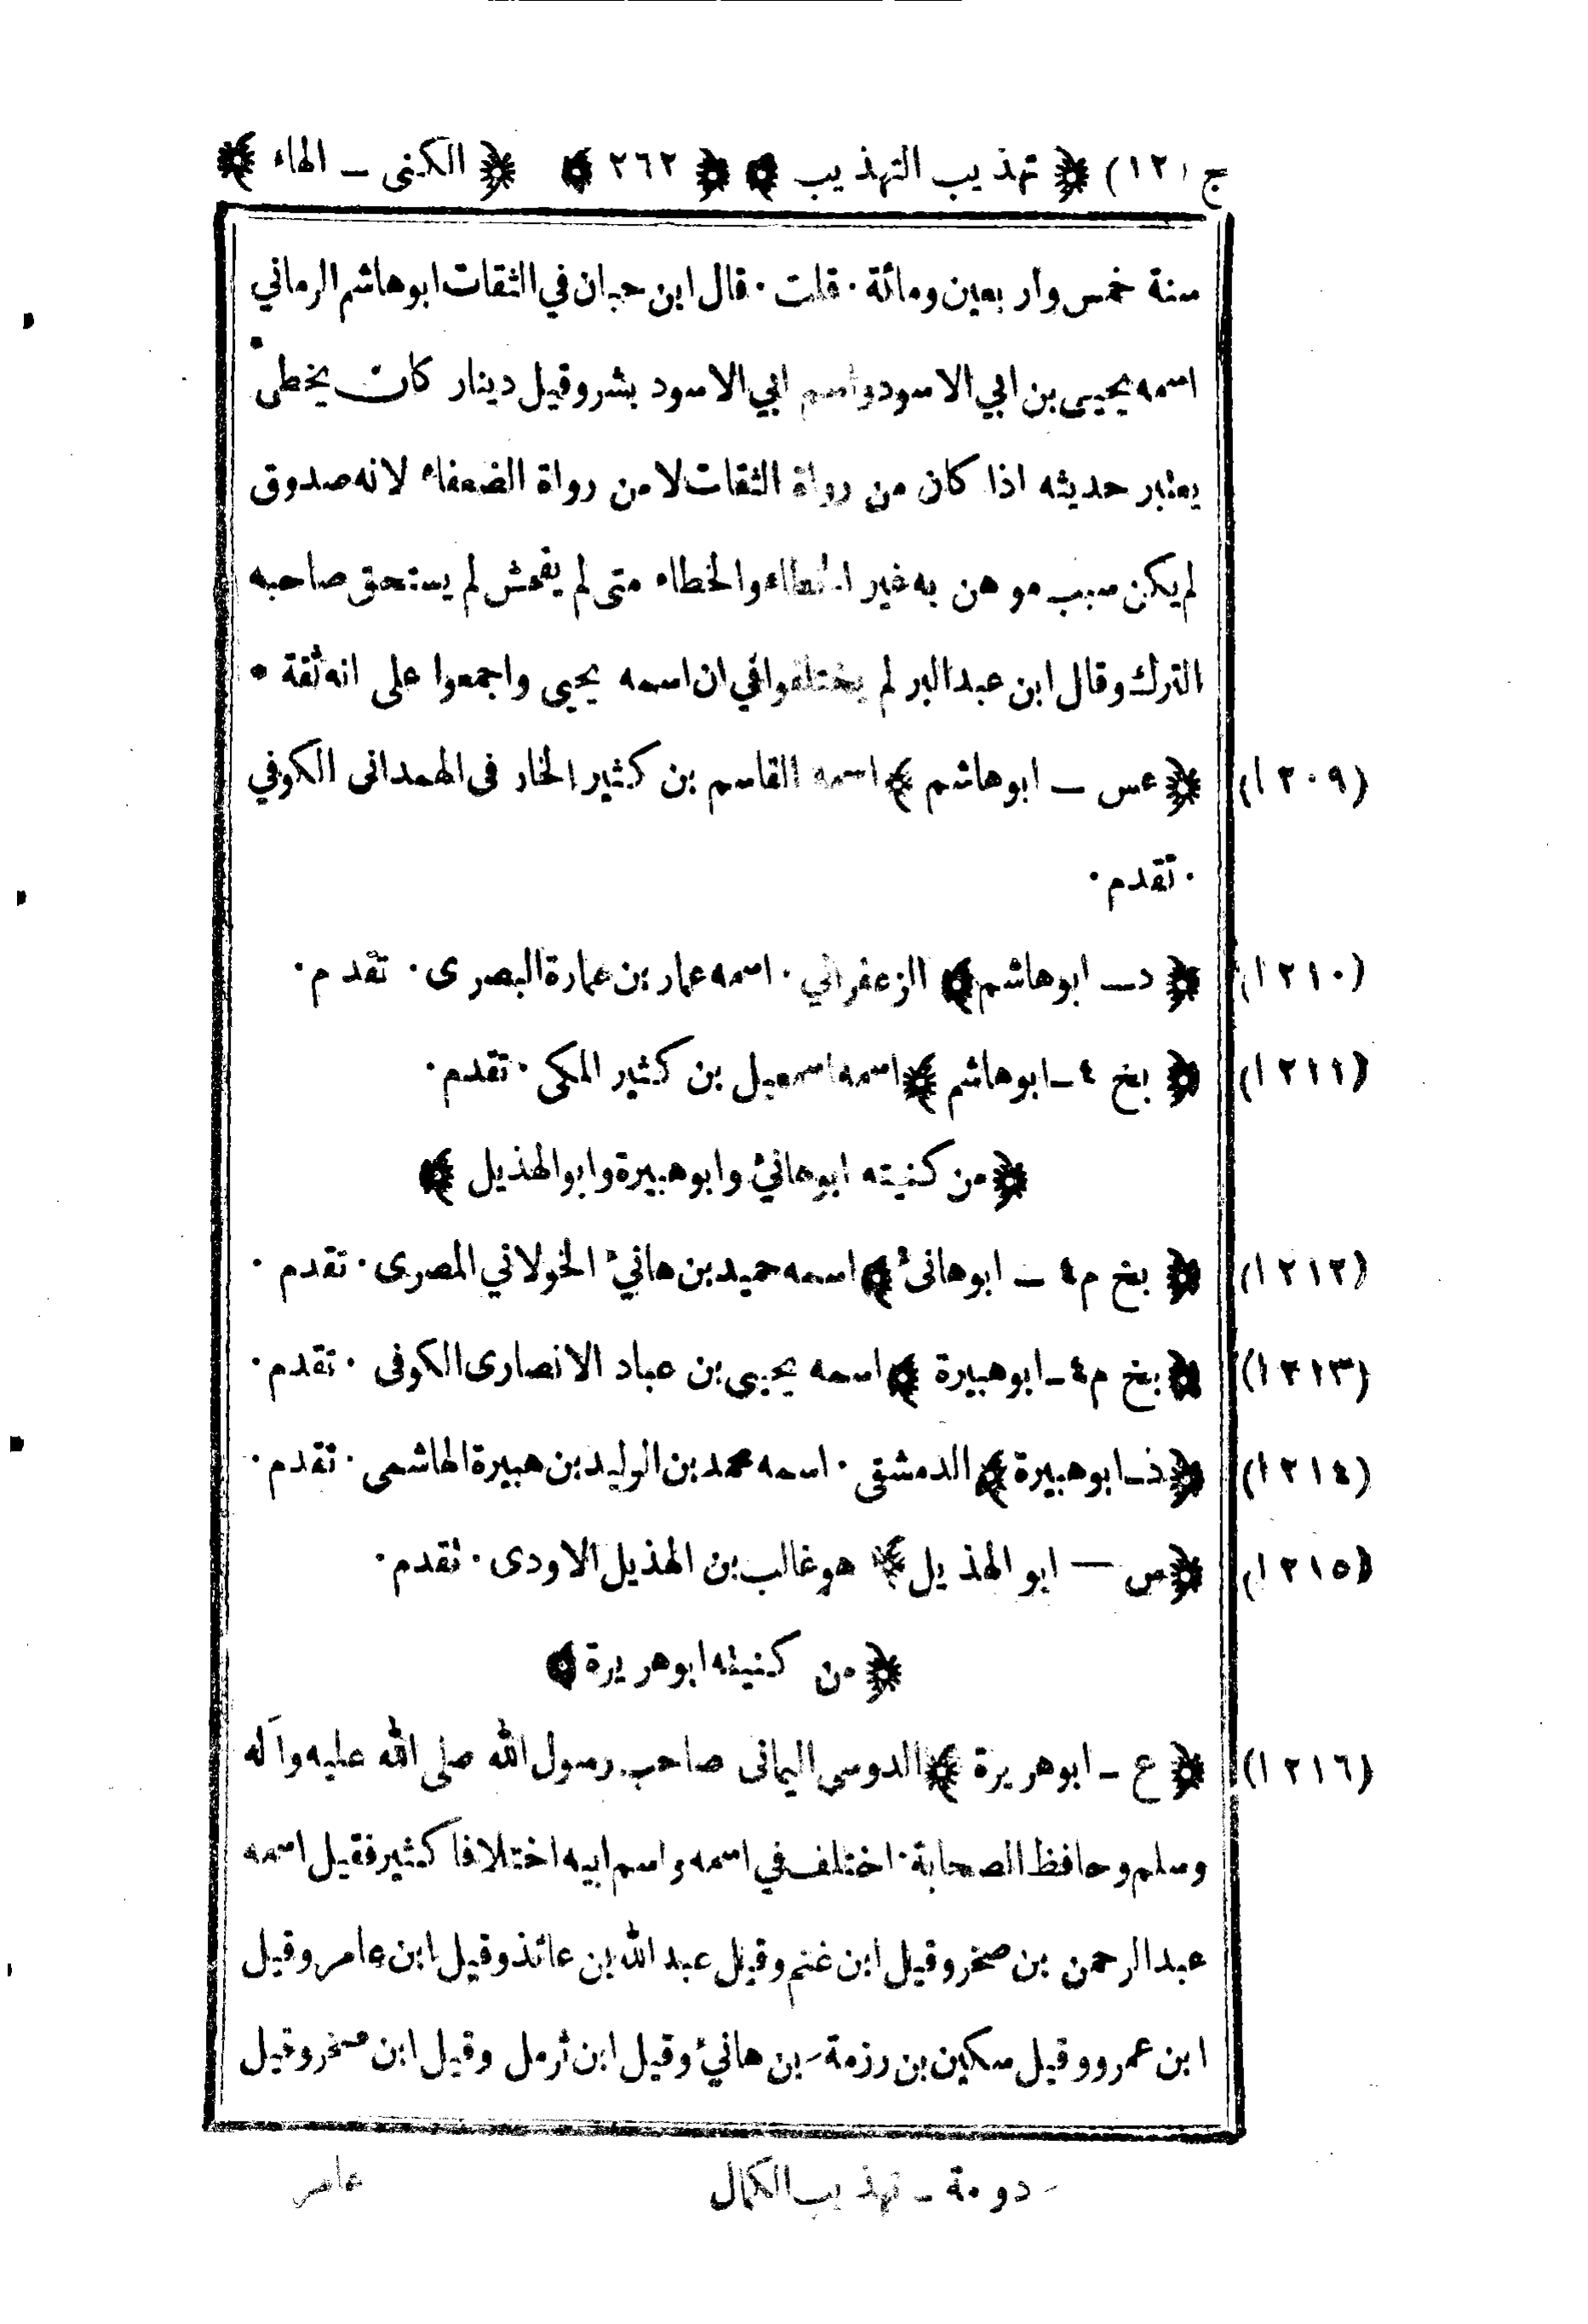 ج (١٢) ﴿ تهذيب التهذيب ﴾ ﴿ ٢٦٢ ﴾ ﴿ الكنى ـ الهاء ﴾
سنة خمس واربعين ومائة ٠ قلت ٠ قال ابن حبان في الثقات ابوهاشم الرماني
اسمه يحيى بن ابي الاسود واسم ابي الاسود بشر وقيل دينار كان يخطىء
يعتبر حديثه اذا كان من رواة الثقات لا من رواة الضعفاء لانه صدوق
لم يكن سبب موهن به غير الخطاء والخطاء متى لم يفحش لم يستحق صاحبه
الترك وقال ابن عبدالبر لم يختلفوا في ان اسمه يحيى واجمعوا على انه ثقة ٠
(١٢٠٩) ﴿ عس ـ ابوهاشم ﴾ اسمه القاسم بن كثير الخارفى الهمدانى الكوفي
٠ تقدم ٠
(١٢١٠) ﴿ د ـ ابوهاشم ﴾ الزعفراني ٠ اسمه عمار بن عمارة البصرى ٠ تقدم ٠
(١٢١١) ﴿ بخ ٤ ـ ابوهاشم ﴾ اسمه اسمعيل بن كثير المكى ٠ تقدم ٠
﴿ من كنيته ابوهانئ وابوهبيرة وابوالهذيل ﴾
(١٢١٢) ﴿ بخ م٤ ـ ابوهانئ ﴾ اسمه حميد بن هانئ الخولاني المصرى ٠ تقدم ٠
(١٢١٣) ﴿ بخ م٤ ـ ابوهبيرة ﴾ اسمه يحيى بن عباد الانصارى الكوفى ٠ تقدم ٠
(١٢١٤) ﴿ د ـ ابوهبيرة ﴾ الدمشقى ٠ اسمه محمد بن الوليد بن هبيرة الهاشمى ٠ تقدم ٠
(١٢١٥) ﴿ س ـ ابو الهذيل ﴾ هو غالب بن الهذيل الاودى ٠ تقدم ٠
﴿ من كنيته ابوهريرة ﴾
(١٢١٦) ﴿ ع ـ ابوهريرة ﴾ الدوسى اليمانى صاحب رسول الله صلى الله عليه وآله
وسلم وحافظ الصحابة ٠ اختلف في اسمه واسم ابيه اختلافا كثير فقيل اسمه
عبدالرحمن بن صخر وقيل ابن غنم وقيل عبدالله بن عائذ وقيل ابن عامر وقيل
ابن عمرو وقيل سكين بن رزمة ـ بن هانئ وقيل ابن ثرمل وقيل ابن صخر وقيل
ـ دومة ـ تهذيب الكمال
عامر